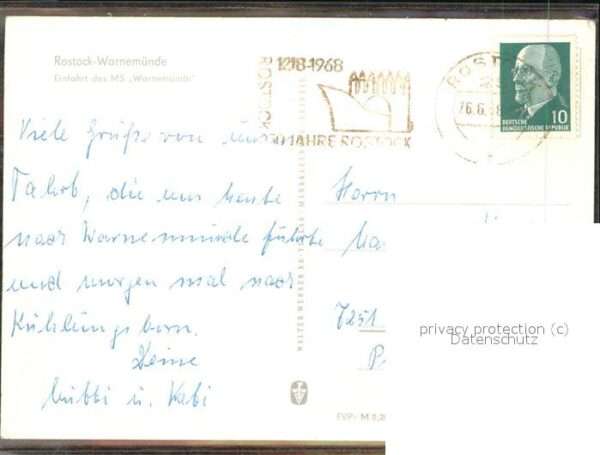 Rostock-Warnemünde
Einfahrt des MS „Warnemünde"
ROSTOCK
1218-1968
750 JAHRE ROSTOCK
ROSTOCK
26.6.68
10
DEUTSCHE
DEMOKRATISCHE REPUBLIK
Viele Grüße von unserer
Fahrt, die uns heute
nach Warnemünde führte
und morgen mal nach
Kühlungsborn.
Deine
Mutti u. Kabi
Herrn
7251
privacy protection (c)
Datenschutz